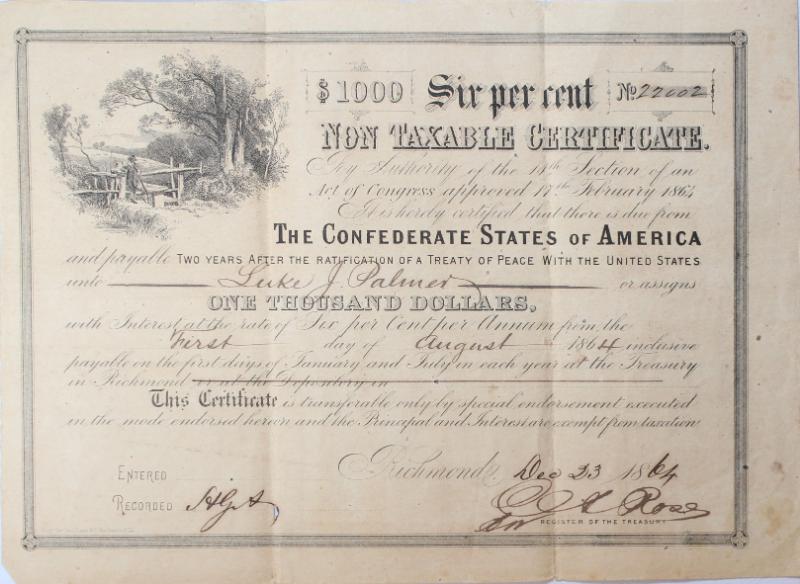 $1000 Six per cent No 22002
NON TAXABLE CERTIFICATE.
By Authority of the 14th Section of an
Act of Congress approved 17th February 1864
It is hereby certified that there is due from
THE CONFEDERATE STATES OF AMERICA
and payable TWO YEARS AFTER THE RATIFICATION OF A TREATY OF PEACE WITH THE UNITED STATES
unto Luke J. Palmer or assigns
ONE THOUSAND DOLLARS,
with Interest at the rate of Six per Cent per Annum from the
First day of August 1864 inclusive
payable on the first days of January and July in each year at the Treasury
in Richmond or at the Depository in
This Certificate is transferable only by special endorsement executed
in the mode endorsed hereon and the Principal and Interest are exempt from taxation
Richmond, Dec 23 1864
ENTERED
RECORDED
Rose
REGISTER OF THE TREASURY